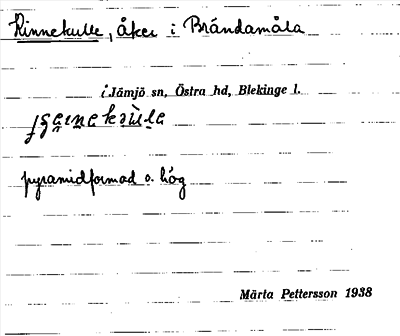 Kinnekulle, åker i Brändamåla
i Jämjö sn, Östra hd, Blekinge l.
pyramidformad o. hög
Märta Pettersson 1938